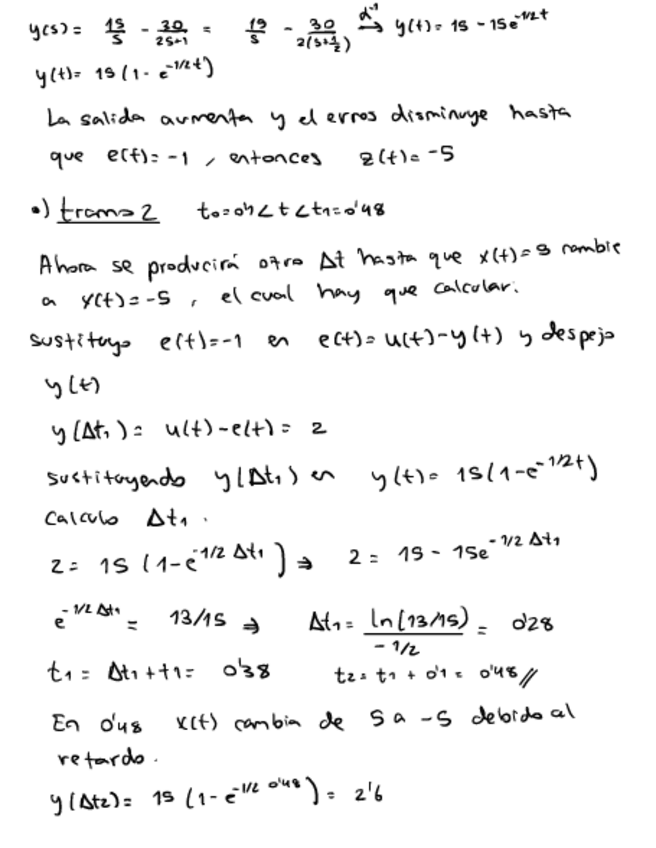 y(s) = 15/s - 30/2s+1 = 15/s - 30/2(s+1/2) → α⁻¹ y(t) = 15 - 15e^-1/2t
y(t) = 15 (1 - e^-1/2t)
La salida aumenta y el erros disminuye hasta
que e(t) = -1 , entonces z(t) = -5
•) tramo 2 t₀=0'1 < t < t₁=0'48
Ahora se producirá otro Δt hasta que x(t)=5 cambie
a x(t)=-5 , el cual hay que calcular.
sustituyo e(t)=-1 en e(t)= u(t)-y(t) y despejo
y(t)
y(Δt₁)= u(t)-e(t)= 2
sustituyendo y(Δt₁) en y(t)= 15(1-e^-1/2t)
Calculo Δt₁ .
2= 15 (1-e^-1/2 Δt₁) ⇒ 2 = 15 - 15e^-1/2 Δt₁
e^-1/2 Δt₁ = 13/15 ⇒ Δt₁ = ln(13/15)/-1/2 = 0'28
t₁ = Δt₁ + t₁ = 0'38 t₂ = t₁ + 0'1 = 0'48 //
En 0'48 x(t) cambia de 5 a -5 debido al
retardo .
y(Δt₂)= 15 (1-e^-1/2 0'48) = 2'6